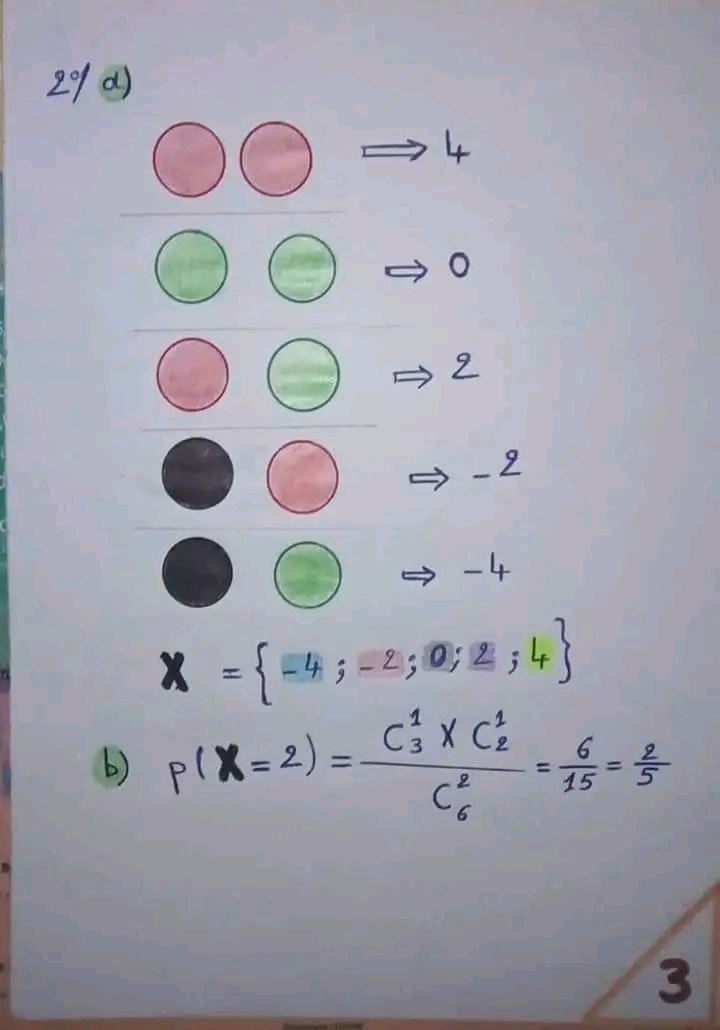 2°/ a)
⟹ 4
⟹ 0
⟹ 2
⟹ -2
⟹ -4
X = { -4 ; -2 ; 0 ; 2 ; 4 }
b) p(X = 2) = (C₃¹ X C₂¹) / C₆² = 6/15 = 2/5
3